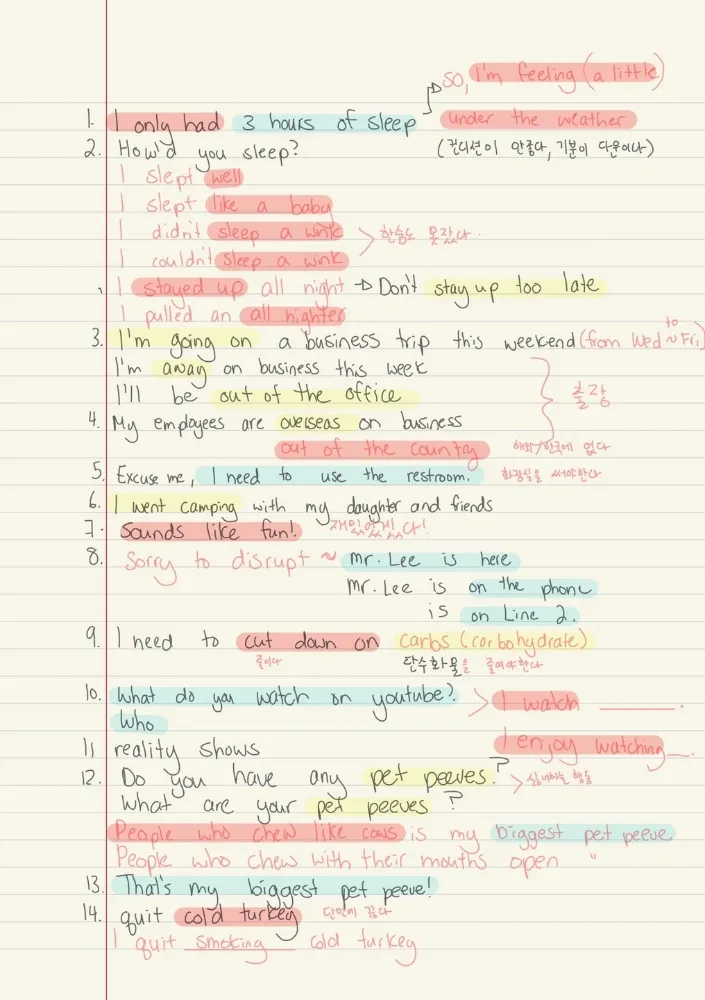 so, I'm feeling (a little)
1. I only had 3 hours of sleep under the weather
2. How'd you sleep? (컨디션이 안좋다, 기분이 다운이다)
I slept well
I slept like a baby
I didn't sleep a wink > 한숨도 못잤다.
I couldn't sleep a wink
I stayed up all night → Don't stay up too late
I pulled an all nighter
3. I'm going on a business trip this weekend (from Wed ~ Fri)
to
I'm away on business this week
I'll be out of the office } 출장
4. My employees are overseas on business
out of the country 해외/한국에 없다
5. Excuse me, I need to use the restroom. 화장실을 써야한다
6. I went camping with my daughter and friends
7. Sounds like fun! 재밌었겠다!
8. Sorry to disrupt ~ Mr. Lee is here
Mr. Lee is on the phone
is on Line 2.
9. I need to cut down on carbs (carbohydrate)
줄이다 탄수화물을 줄여야한다
10. What do you watch on youtube? > I watch ______.
Who
11 reality shows I enjoy watching __.
12. Do you have any pet peeves? > 싫어하는 행동
What are your pet peeves ?
People who chew like cows is my biggest pet peeve
People who chew with their mouths open "
13. That's my biggest pet peeve!
14. quit cold turkey 단번에 끊다
I quit smoking cold turkey